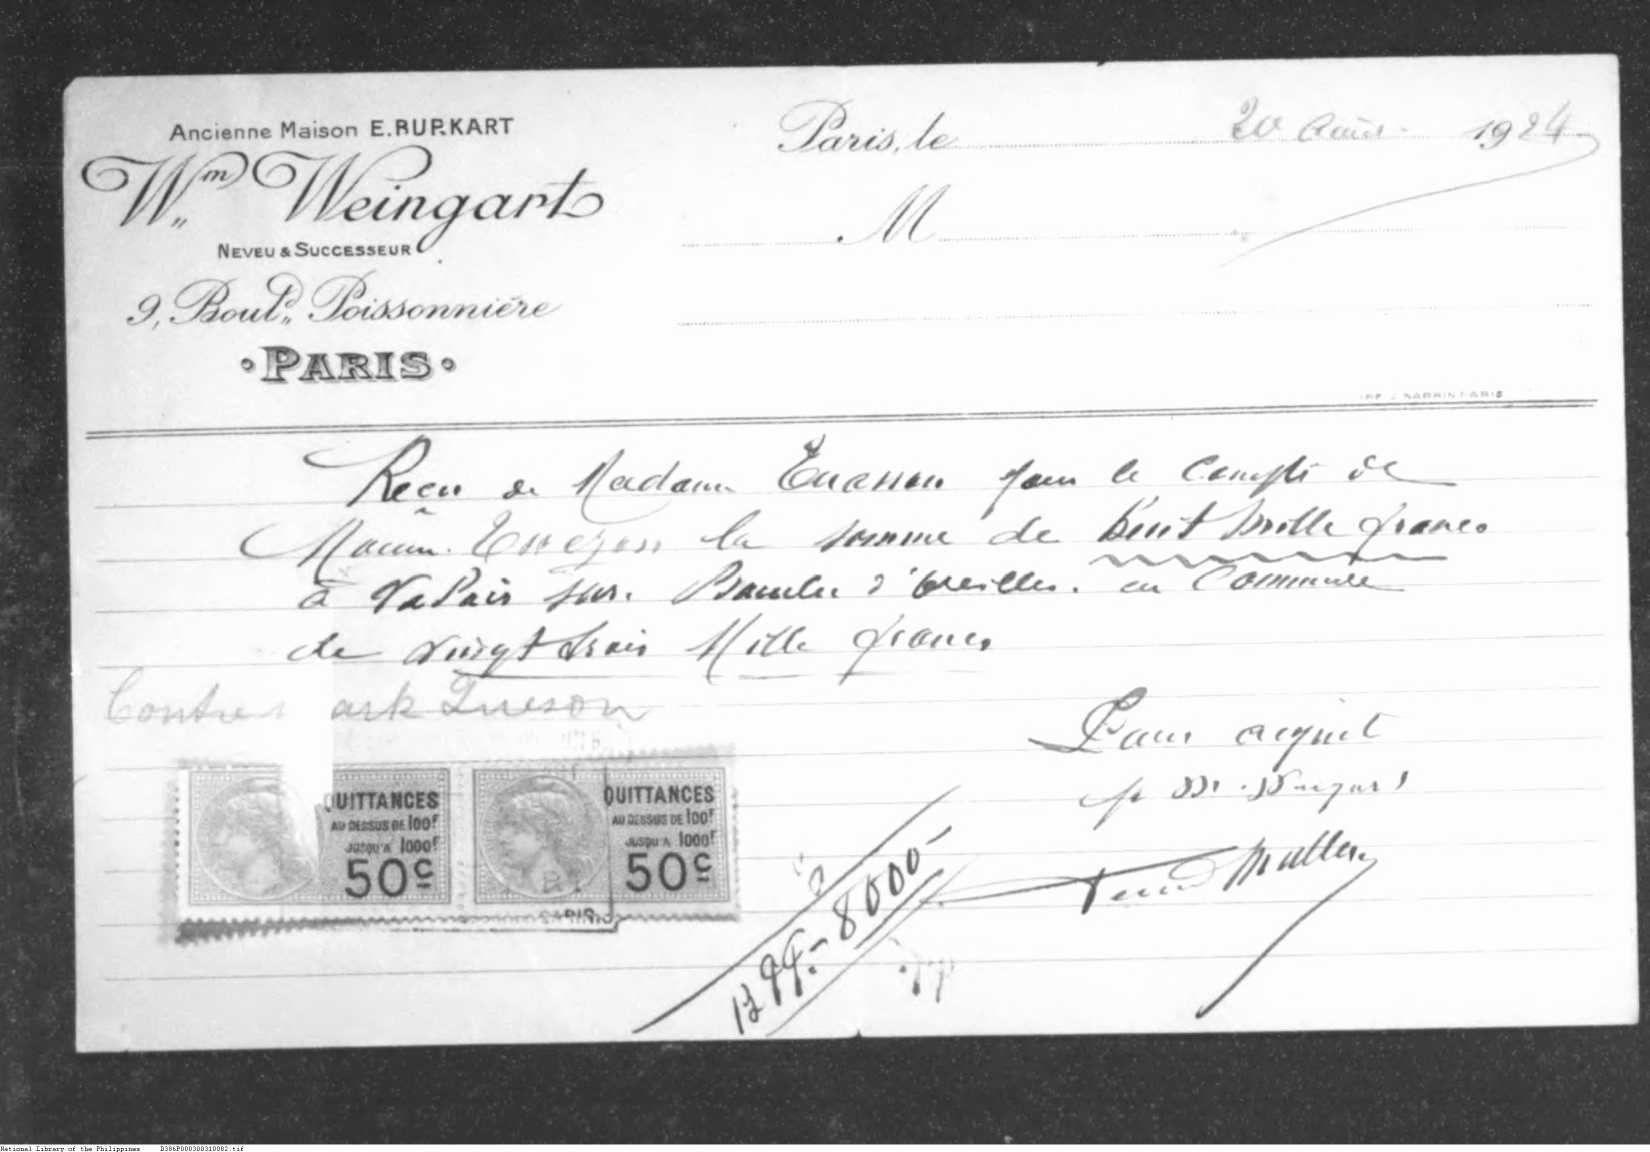 Ancienne Maison E. BURKART
Wm Weingart
NEVEU & SUCCESSEUR
9, Bould Poissonnière
PARIS
Paris, le 20 Août 1924
M
Reçu de Madame pour le Compte de
la somme de huit mille francs
à Valoir sur Boucles d'Oreilles. en Commande
de vingt trois Mille francs
Contre Quezon
QUITTANCES
AU DESSUS DE 100F
JUSQU'A 1000F
50c
QUITTANCES
AU DESSUS DE 100F
JUSQU'A 1000F
50c
PARIS
Pour acquit
8000
National Library of the Philippines D386P000300310082.tif